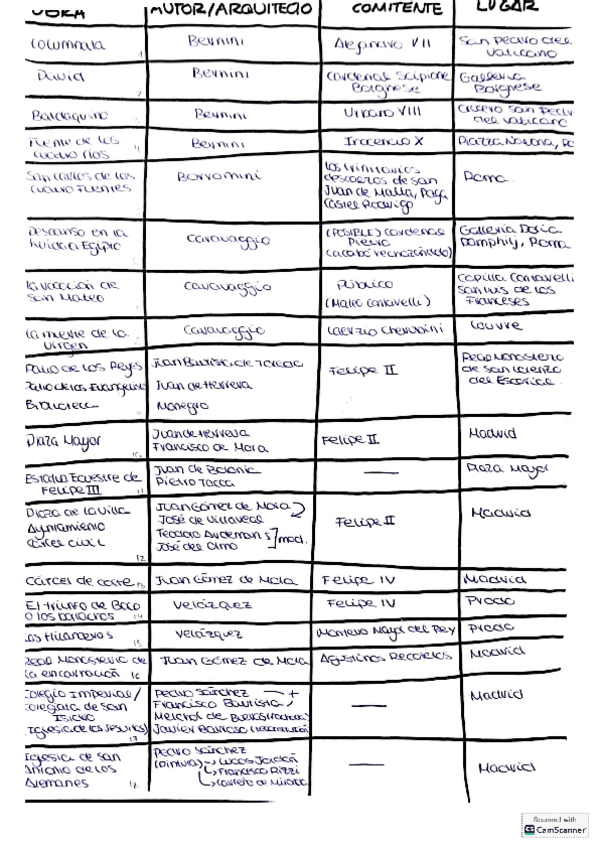 OBRA AUTOR/ARQUITECTO COMITENTE LUGAR
Columnata Bernini Alejandro VII San Pedro del
Vaticano
David Bernini Cardenal Scipione Galleria
Borghese Borghese
Baldaquino Bernini Urbano VIII San Pedro
del Vaticano
Fuente de los Bernini Inocencio X Piazza Navona,
cuatro ríos
San Carlos de las Borromini los trinitarios Roma
cuatro Fuentes descalzos de San
Juan de Malta,
Descanso en la Caravaggio (POSIBLE) cardenal Galleria Doria
huida a Egipto Pietro Pamphily, Roma
La vocación de Caravaggio Público Capilla Contarelli
San Mateo (Mateo Contarelli) San Luis de los
Franceses
La muerte de la Caravaggio Laerzio Cherubini Louvre
Virgen
Patio de los Reyes Juan Bautista de Toledo Felipe II Real Monasterio
Patio de los Evangelistas Juan de Herrera de San Lorenzo
Biblioteca Monegro del Escorial
Plaza Mayor Juan de Herrera Felipe II Madrid
10. Francisco de Mora
Estatua Ecuestre de Juan de Bolonia — Plaza Mayor
Felipe III 11 Pietro Tacca
Plaza de la Villa Juan Gómez de Mora Felipe II Madrid
Ayuntamiento José de Villareal
Cárcel civil Teodoro Ardemans ] mod.
12. José del Olmo
Cárcel de corte 13 Juan Gómez de Mora Felipe IV Madrid
El triunfo de Baco Velázquez Felipe IV Prado
o los borrachos 14
Las Hilanderas 15 Velázquez Montero Mayor del Rey Prado
Real Monasterio de Juan Gómez de Mora Agustinos Recoletos Madrid
la encarnación 16
Colegio Imperial/ Pedro Sánchez — + — Madrid
Colegiata de San Francisco Bautista/
Isidro Melchor de
(Iglesia de los Jesuitas) 17 Javier Barroso
Iglesia de San Pedro Sánchez — Madrid
Antonio de los (pintura) → Lucas Jordán
Alemanes 18 Francisco Rizzi
Carreño de Miranda
Scanned with
CS CamScanner